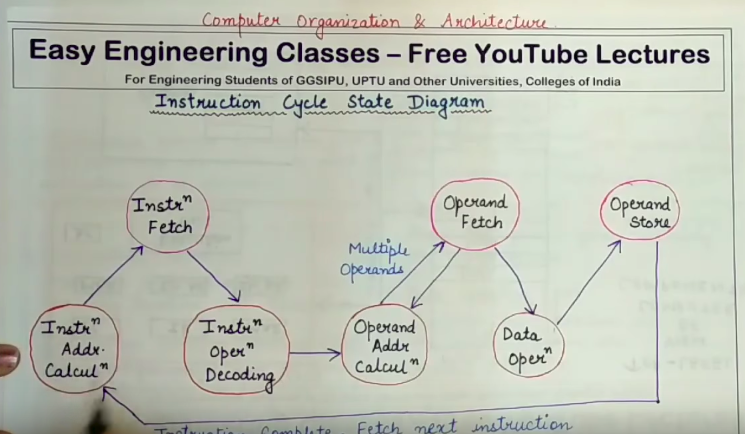 Computer Organization & Architecture
Easy Engineering Classes – Free YouTube Lectures
For Engineering Students of GGSIPU, UPTU and Other Universities, Colleges of India
Instruction Cycle State Diagram
Instrⁿ
Fetch
Operand
Fetch
Operand
Store
Multiple
Operands
Instrⁿ
Addr.
Calculⁿ
Instrⁿ
Operⁿ
Decoding
Operand
Addr
Calculⁿ
Data
Operⁿ
Instruction Complete Fetch next instruction